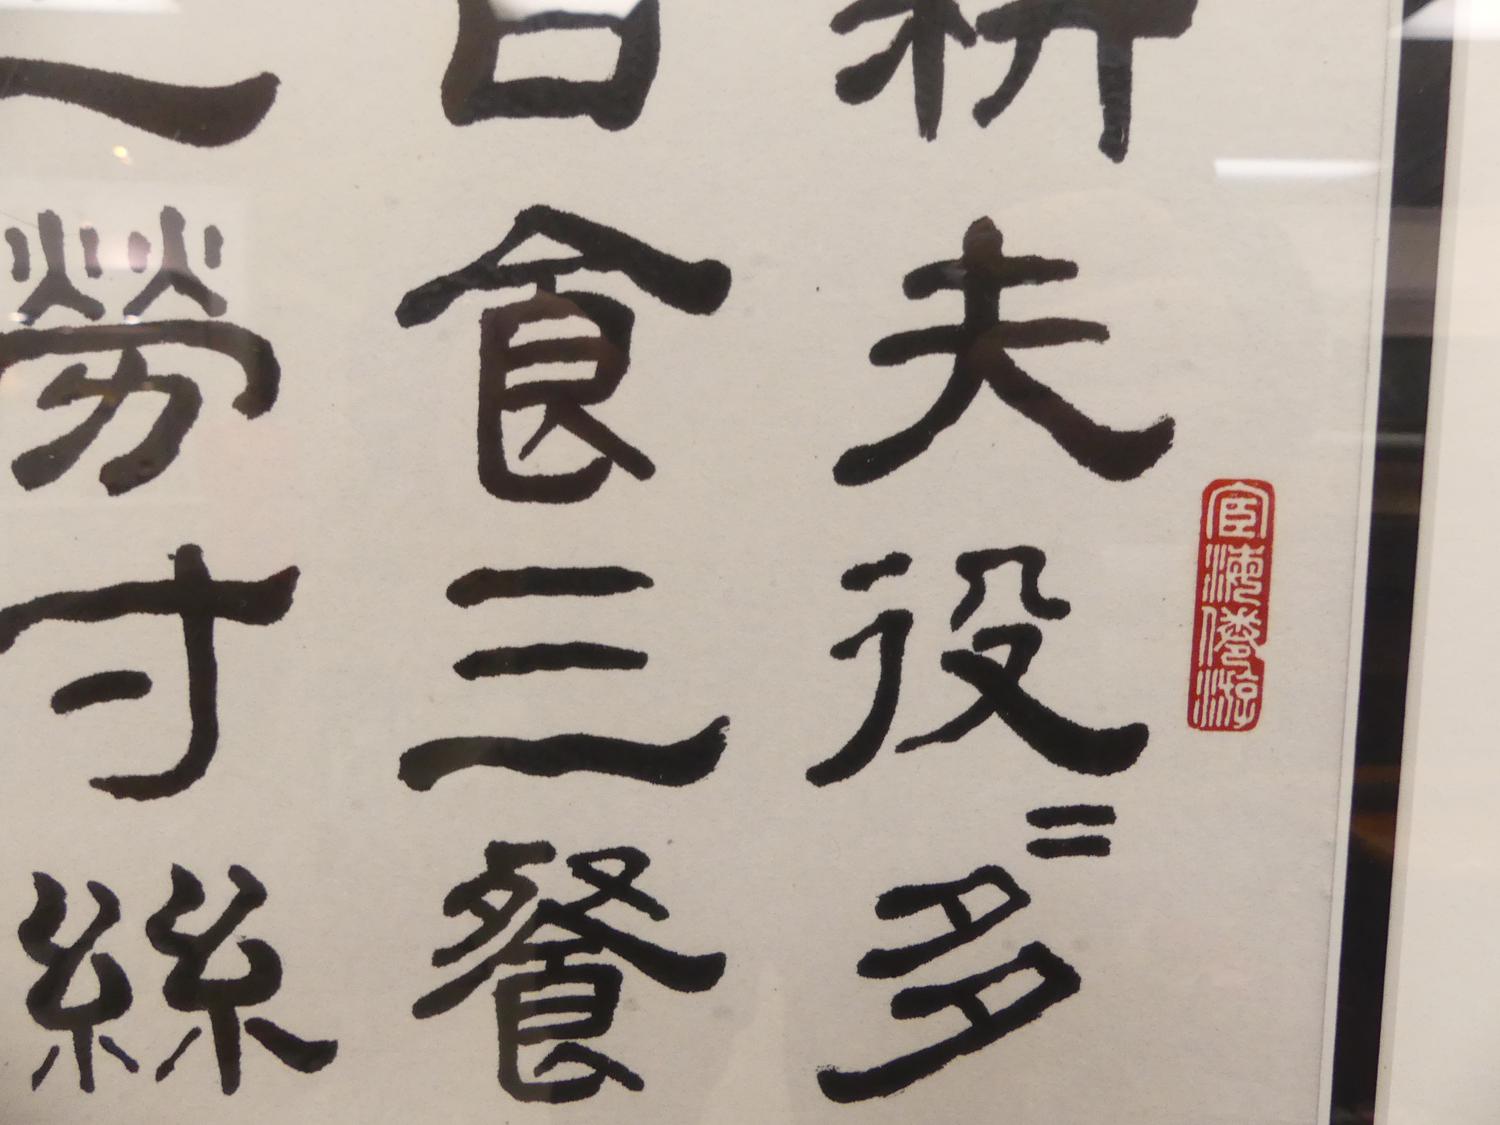 耕夫役〻多
日食三餐
勞寸絲